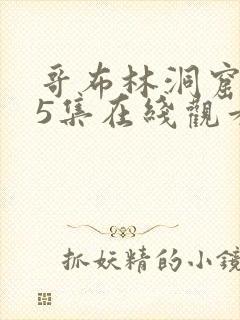 哥布林洞窟
5集在綫觀
抓妖精的小鏡